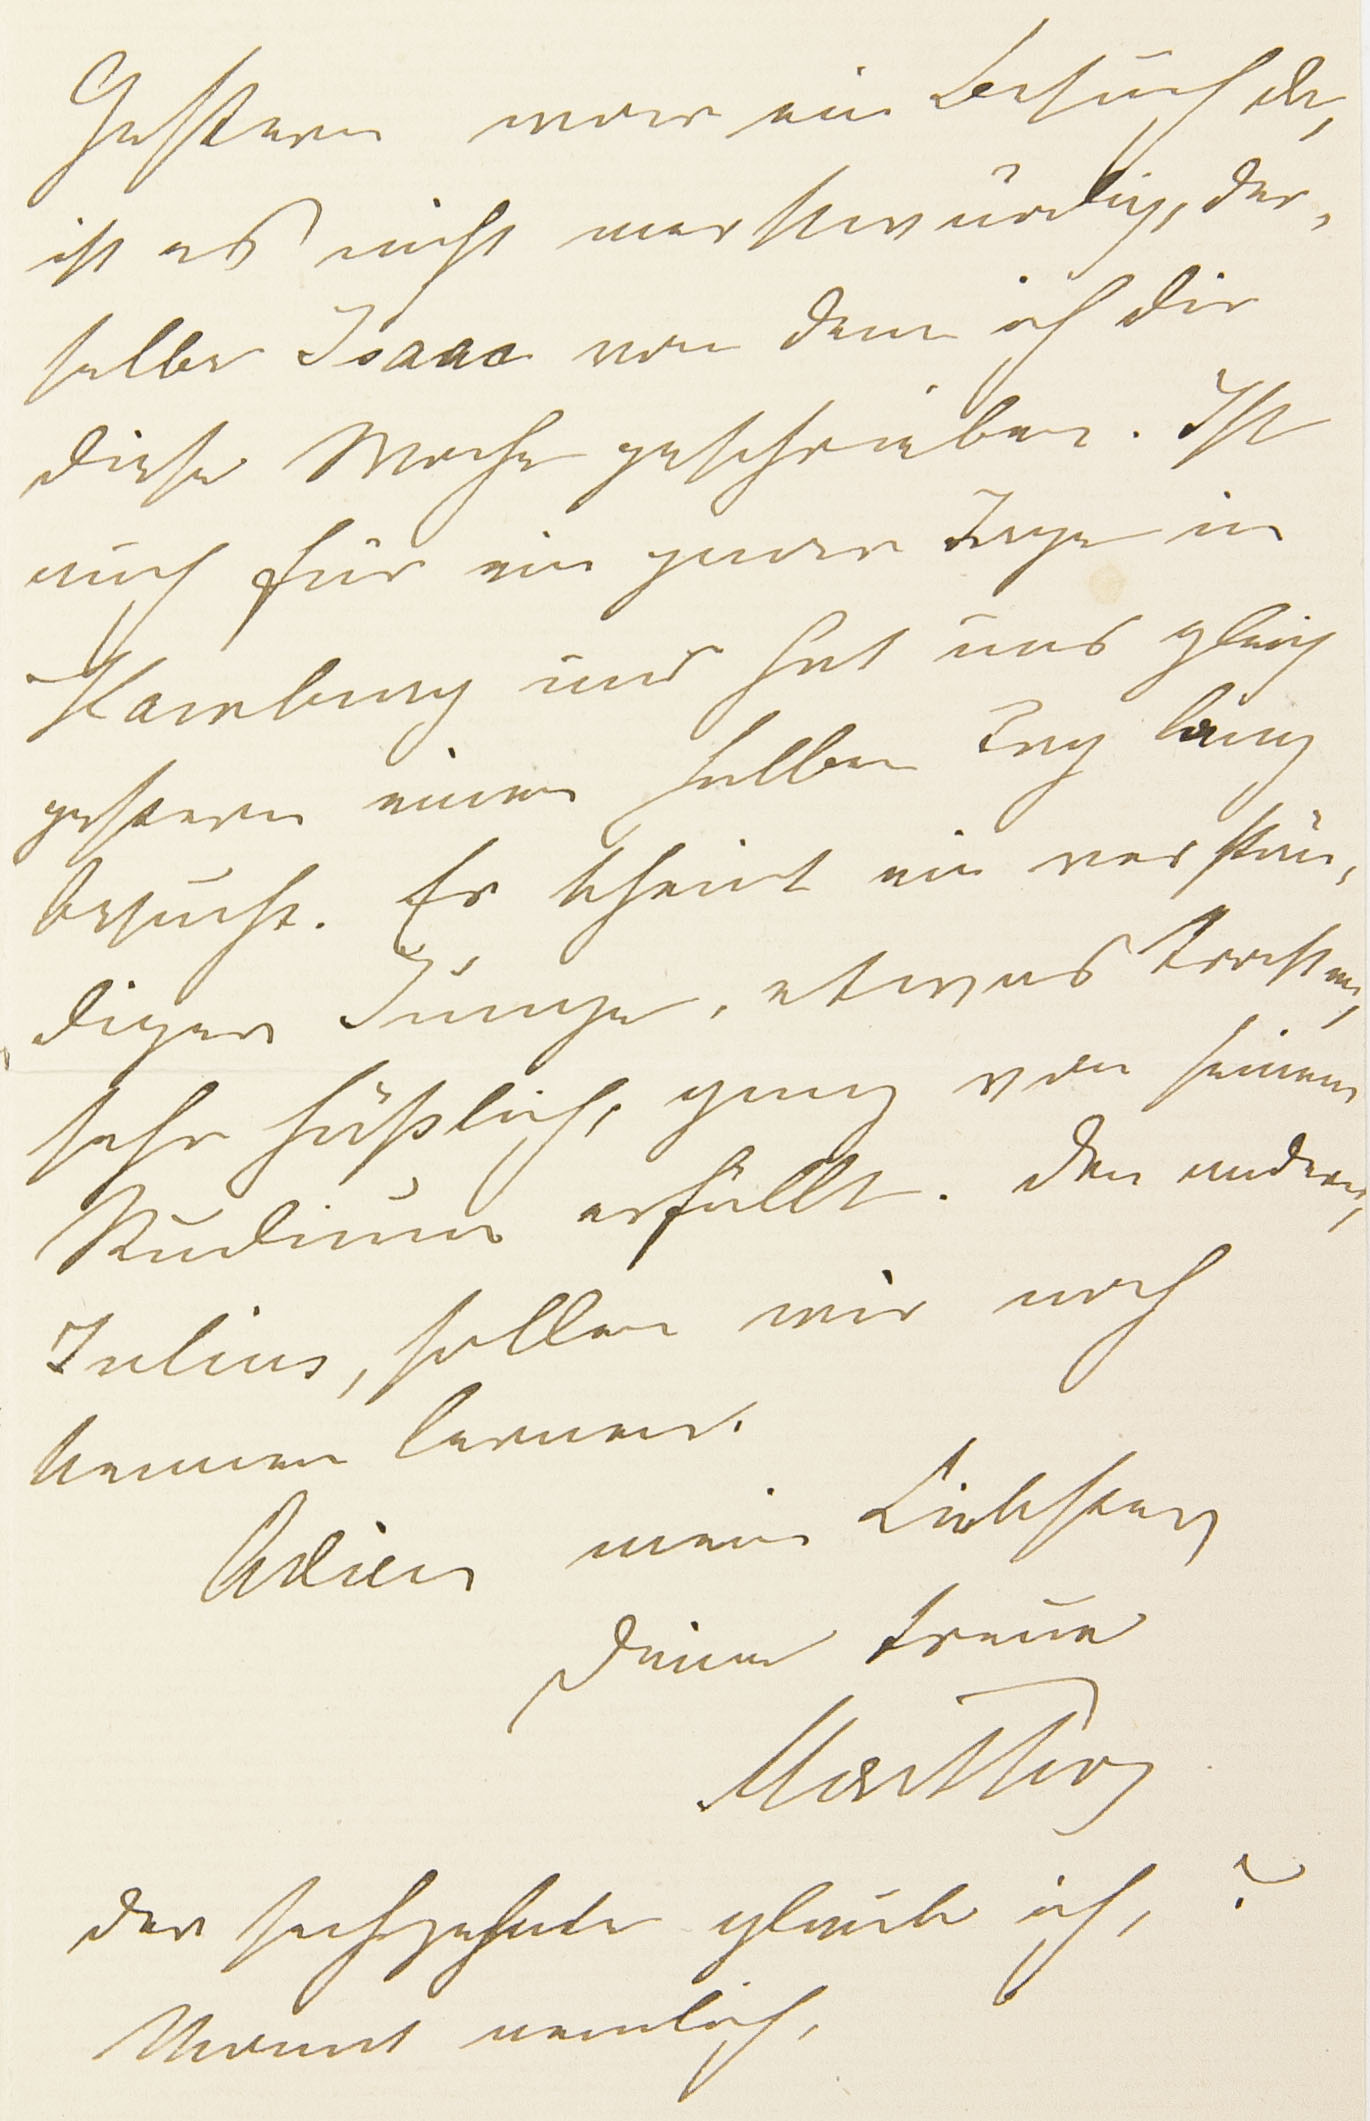 Gestern war ein Besuch da,
ist es nicht merkwürdig, der-
selbe Isaac von dem ich Dir
diese Woche geschrieben. Ist
auch für ein paar Tage in
Hamburg und hat uns gleich
gestern einen halben Tag lang
besucht. Er scheint ein verstän-
diger Junge, etwas trocken,
sehr häßlich, ganz von seinem
Studium erfüllt. Den andern,
Julius, sollen wir noch
kennen lernen.
Adieu mein Liebster
Deine treue
Martha
der sechzehnte glaube ich, ?
Monat nemlich,